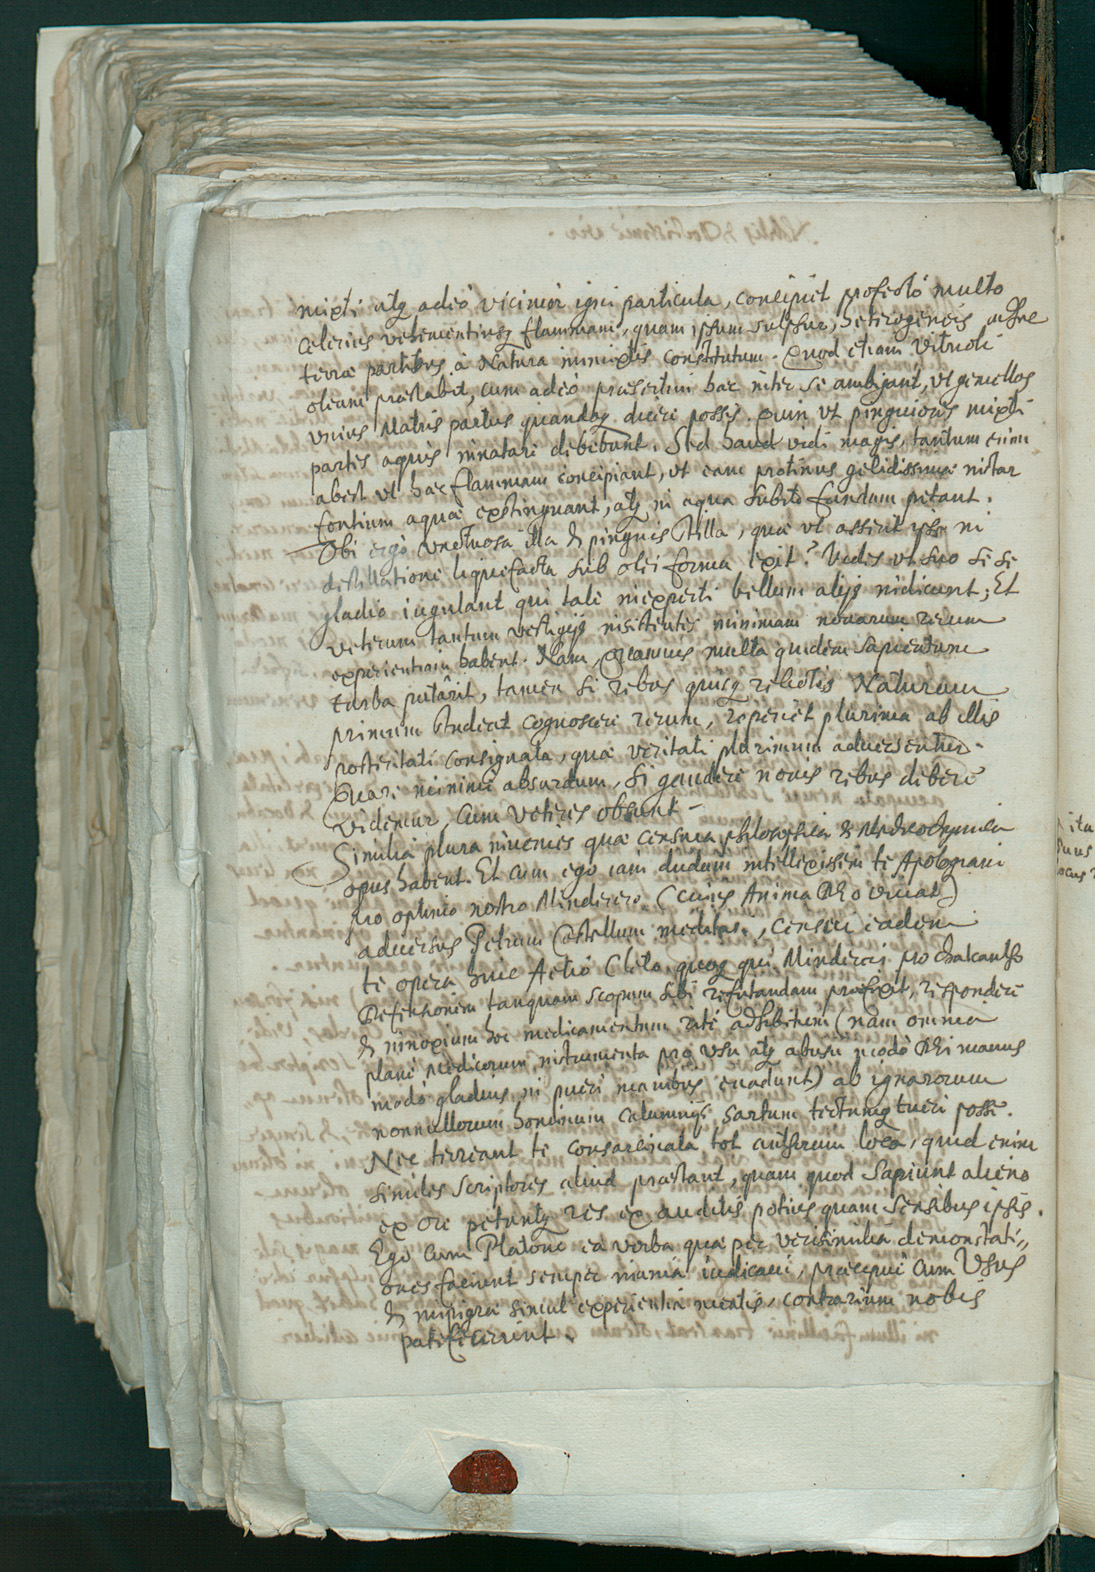 mixti atq adeò vicinior igni particula, concipiet profectò multo
celerius vehementiusq flammam, quam ipsum sulphur, heterogeneis
terræ partibus à Natura immixtis constitutum. Quod etiam Vitrioli
oleum præstabit, cum adeò præsertim hæc inter se ambigant, vt gemellos
vnius Matris partus quandoq dicere possis. Quin vt pinguioris mixti
partis aquis innatari debebunt. Sed haud vidi magis, tantum enim
abest vt hæc flammam concipiant, vt eam protinus gelidissimæ instar
fontium aquæ extinguant, atq in aqua subito fundum petant.
Vbi ergò vnctuosa illa & pinguis stilla, quæ vt asserit ipse in
destillatione liquefacta sub olei forma exit? Vides vt suo se se
gladio iugulant qui tale inexperti bellum alijs indicunt; Et
veterum tantum vestigijs insistentes minimam nouarum rerum
experientiam habent. Nam, quamuis multa quidem sapientum
turba putârit, tamen si rebus quisq relictis Naturam
primum studeat cognoscere rerum, reperiet plurima ab illis
posteritati consignata, quæ veritati plurimum aduersentur.
Quare minimè absurdum, si gaudere nouis rebus debere
videmur, cum veteres obsunt.
Similia plura inuenies quæ censura philosophica &
opus habent. Et cum ego iam dudum intellexissem te Apologiam
pro optimo nostro Minderero (cuius Anima DEo viuat)
aduersus Petrum Castellum meditari, censeo eadem
te opera huic Aetio Cleto, quoq qui Mindereri pro chalcantho
Defensionem tanquam scopum sibi refutandam præfixit, respondere
& innoxium hoc medicamentum ritè adhibitum (nam omnia
planè Medicorum instrumenta pro vsu atq abusu modò DEi manus
modò gladius in pueri manibus euadunt) ab ignarorum
nonnullorum hominum calumnijs sartum tectumq tueri posse.
Nec terreant te consarcinata tot authorum loca, quid enim
similes Scriptores aliud præstant, quam quod sapiunt alieno
ex ore petuntq res ex auditis potius quam sensibus ipsis.
Ego cum Platone ea verba quæ per verisimilia demonstrati„
ones faciunt semper inania iudicaui, præcipuè cum Vsus
& impigræ simul experientia mentis, contrarium nobis
patefecerint.